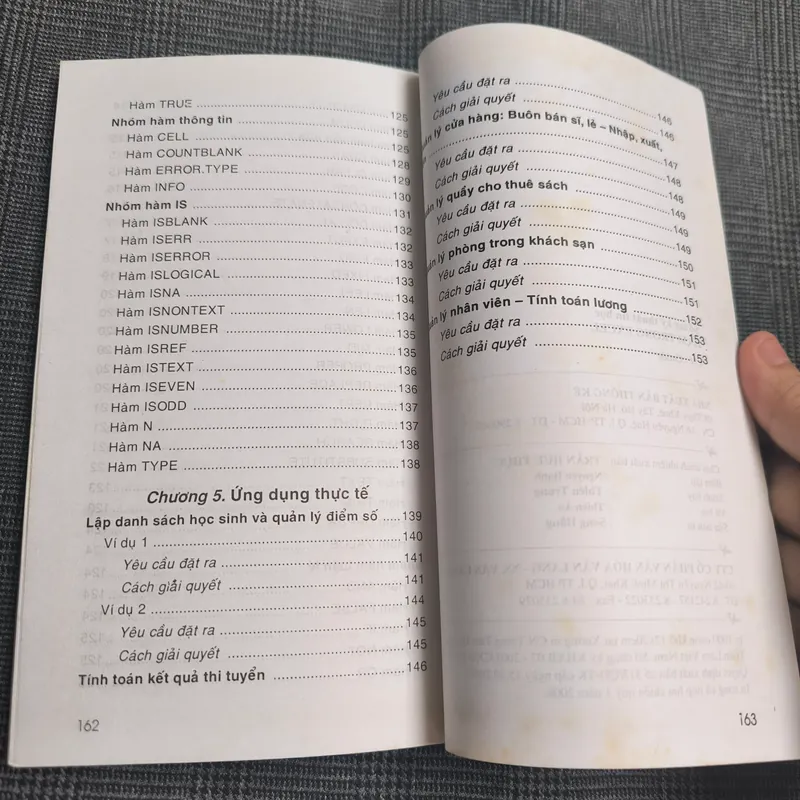 Hàm TRUE ........ 125
Nhóm hàm thông tin ........ 125
Hàm CELL ........ 125
Hàm COUNTBLANK ........ 128
Hàm ERROR.TYPE ........ 129
Hàm INFO ........ 130
Nhóm hàm IS ........ 131
Hàm ISBLANK ........ 132
Hàm ISERR ........ 132
Hàm ISERROR ........ 133
Hàm ISLOGICAL ........ 133
Hàm ISNA ........ 134
Hàm ISNONTEXT ........ 134
Hàm ISNUMBER ........ 135
Hàm ISREF ........ 135
Hàm ISTEXT ........ 136
Hàm ISEVEN ........ 136
Hàm ISODD ........ 137
Hàm N ........ 137
Hàm NA ........ 138
Hàm TYPE ........ 138
Chương 5. Ứng dụng thực tế
Lập danh sách học sinh và quản lý điểm số ..... 139
Ví dụ 1 ........ 140
Yêu cầu đặt ra ........ 141
Cách giải quyết ........ 141
Ví dụ 2 ........ 144
Yêu cầu đặt ra ........ 145
Cách giải quyết ........ 145
Tính toán kết quả thi tuyển ........ 146
162
Yêu cầu đặt ra ........ 146
Cách giải quyết ........ 146
ản lý cửa hàng: Buôn bán sĩ, lẻ – Nhập, xuất,
........ 147
Yêu cầu đặt ra ........ 148
Cách giải quyết ........ 148
ản lý quầy cho thuê sách ........ 149
Yêu cầu đặt ra ........ 149
Cách giải quyết ........ 149
ản lý phòng trong khách sạn ........ 150
Yêu cầu đặt ra ........ 151
Cách giải quyết ........ 151
ản lý nhân viên – Tính toán lương ........ 152
Yêu cầu đặt ra ........ 153
Cách giải quyết ........ 153
163